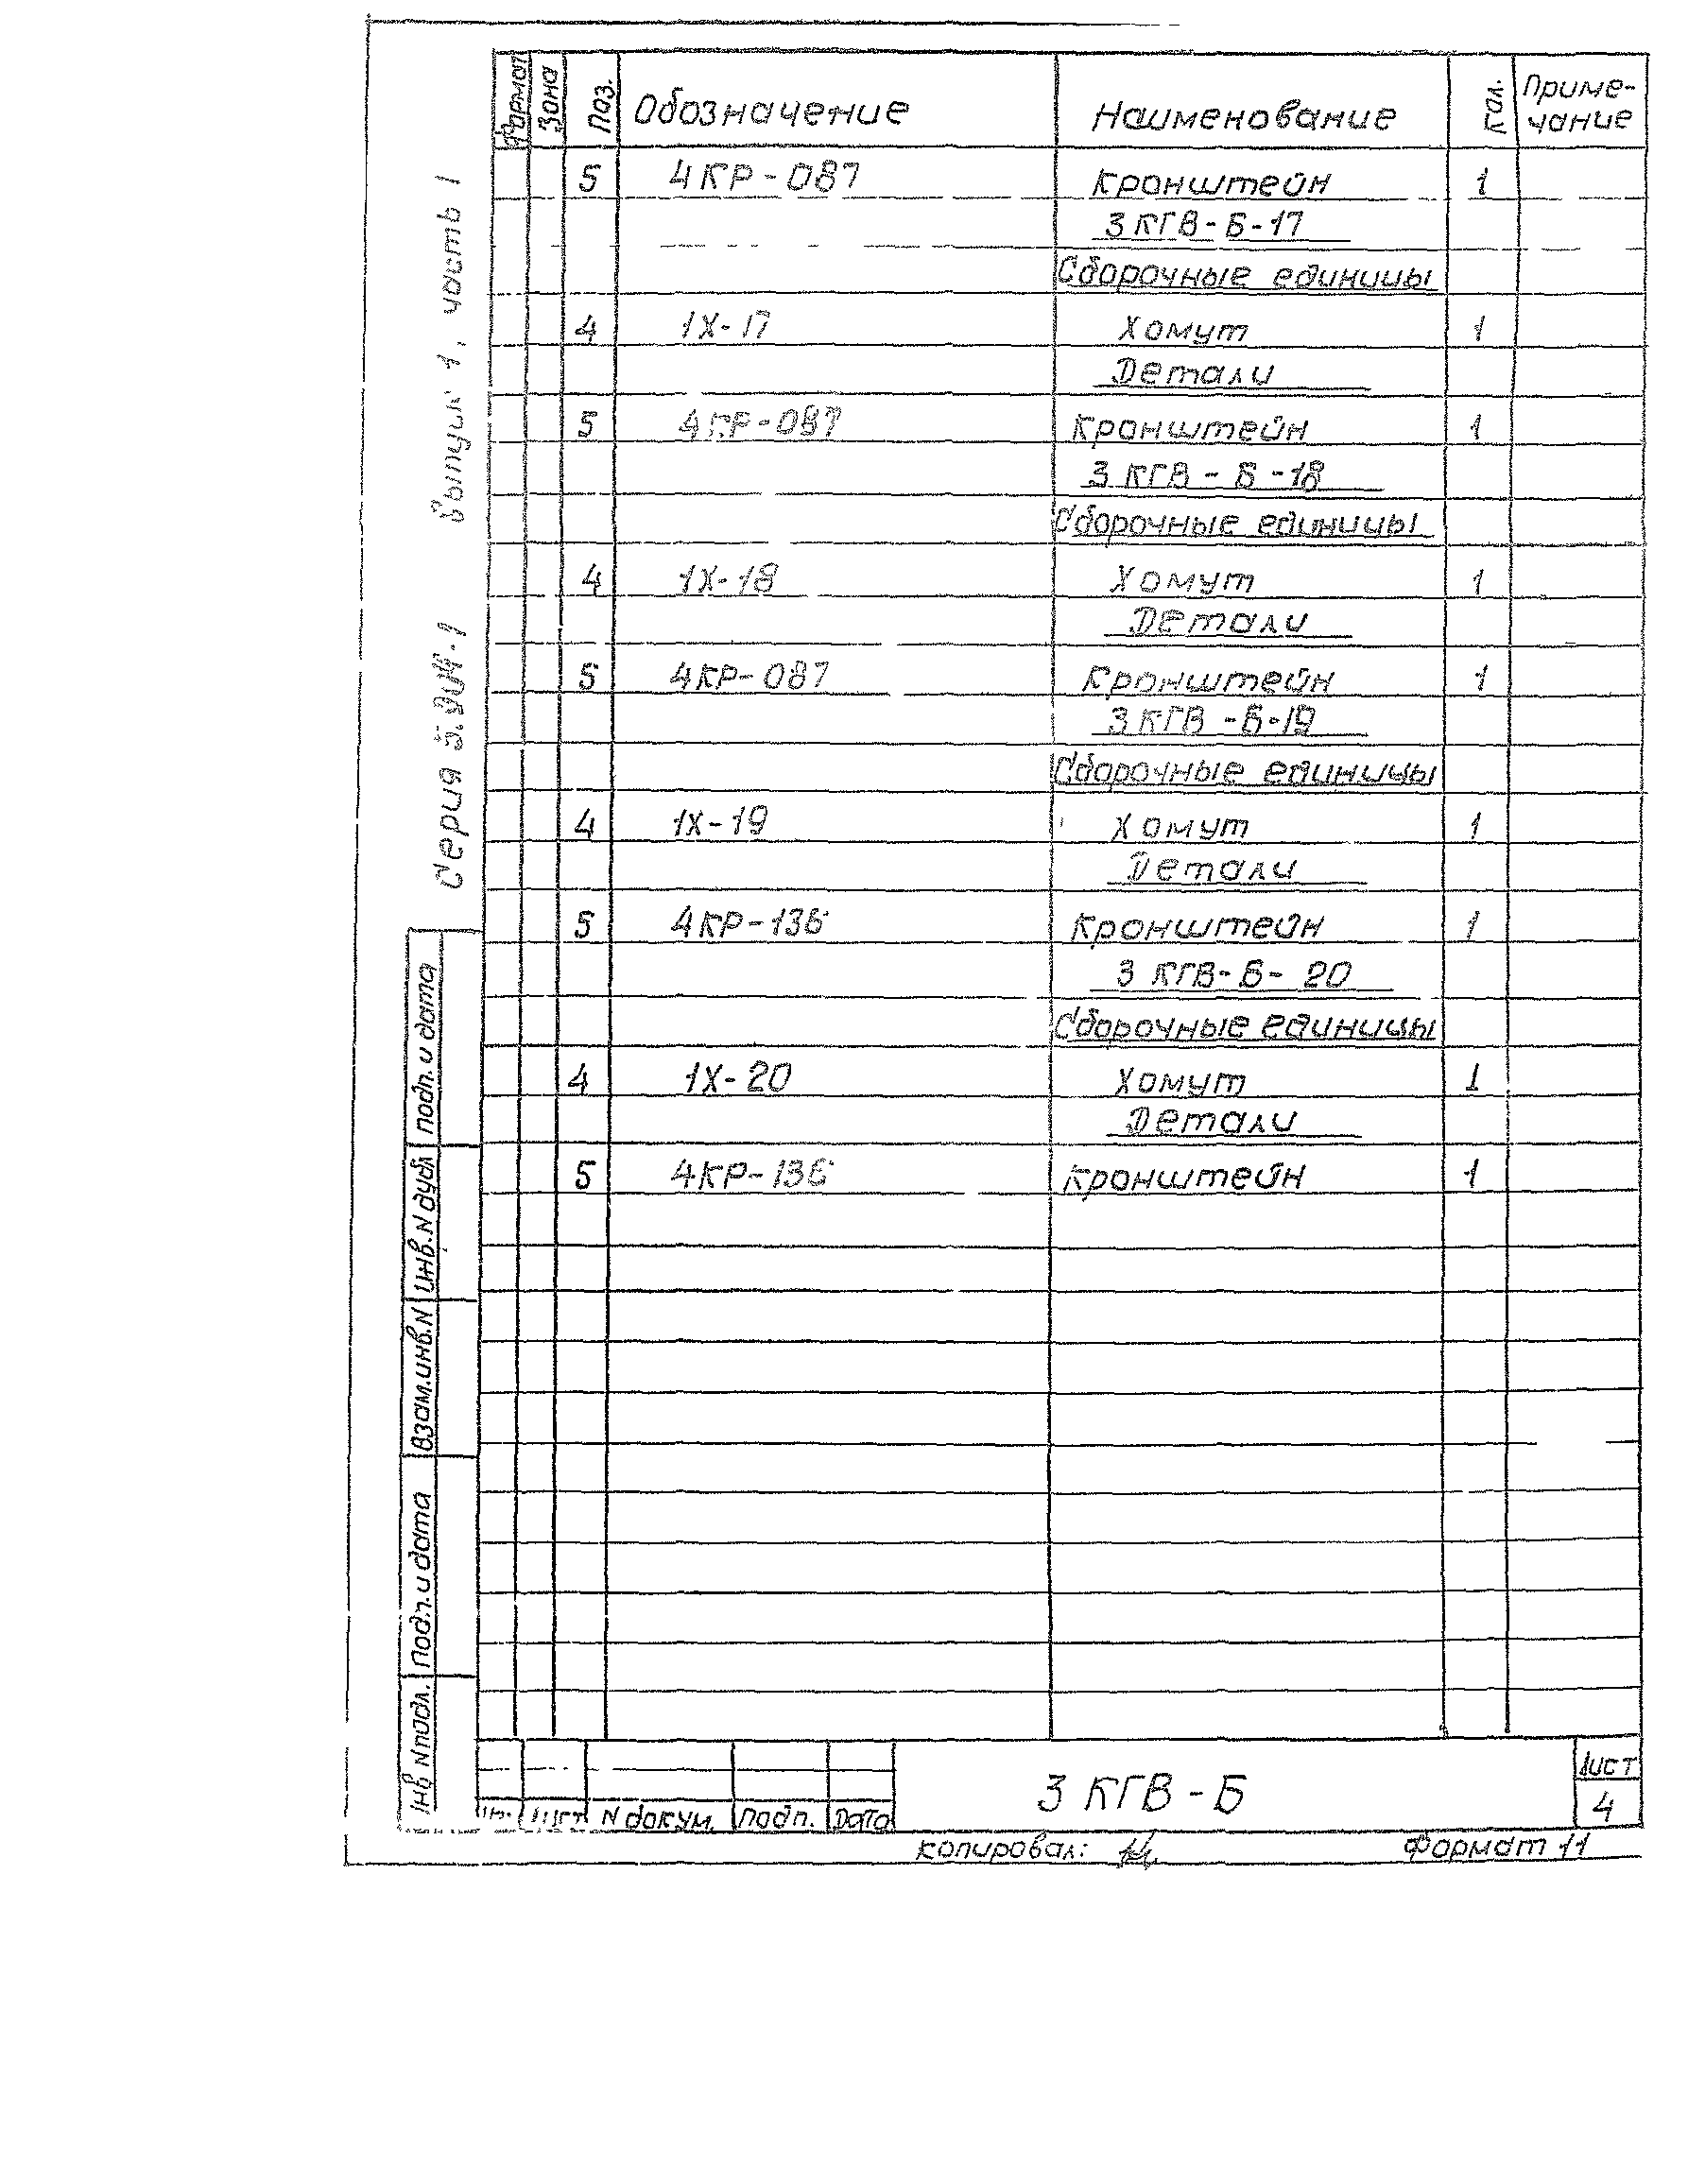 Формат Зона Поз. Обозначение Наименование Кол. Приме-
чание
5 4КР-087 Кронштейн 1
3 КГВ-Б-17
Сборочные единицы
4 1Х-17 Хомут 1
Детали
5 4КР-087 Кронштейн 1
3 КГВ-Б-18
Сборочные единицы
4 1Х-18 Хомут 1
Детали
5 4КР-087 Кронштейн 1
3 КГВ-Б-19
Сборочные единицы
4 1Х-19 Хомут 1
Детали
5 4КР-136 Кронштейн 1
3 КГВ-Б-20
Сборочные единицы
4 1Х-20 Хомут 1
Детали
5 4КР-136 Кронштейн 1
Серия 5.904-1 Выпуск 1, часть 1
подп. и дата
инв. N дубл
Взам.инв.N
Подп. и дата
инв N подл.
Лист N докум. подп. Дата
3 КГВ-Б
Лист
4
копировал:
Формат 11